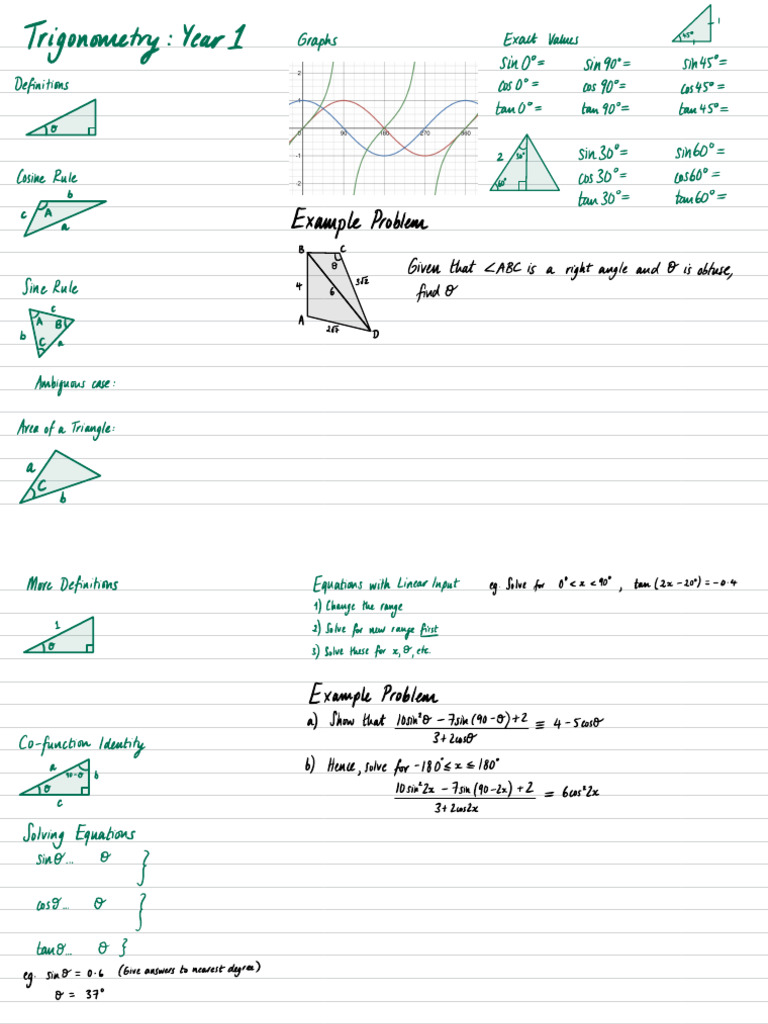 Trigonometry: Year 1
Definitions
θ
Cosine Rule
b
c
A
a
Sine Rule
c
A
B
b
C
a
Ambiguous case:
Area of a Triangle:
a
C
b
Graphs
2
1
0
90
180
270
360
-1
-2
Exact Values
45°
1
1
sin 0° =
sin 90° =
sin 45° =
cos 0° =
cos 90° =
cos 45° =
tan 0° =
tan 90° =
tan 45° =
2
30°
60°
sin 30° =
sin 60° =
cos 30° =
cos 60° =
tan 30° =
tan 60° =
Example Problem
B
C
θ
4
3√2
6
A
2√7
D
Given that ∠ABC is a right angle and θ is obtuse,
find θ
More Definitions
1
θ
Co-function Identity
a
90-θ
b
θ
c
Solving Equations
sinθ... θ }
cosθ... θ }
tanθ... θ }
eg. sinθ = 0.6 (Give answers to nearest degree)
θ = 37°
Equations with Linear Input
eg. Solve for 0° < x < 90°, tan (2x - 20°) = -0.4
1) Change the range
2) Solve for new range first
3) Solve these for x, θ, etc.
Example Problem
a) Show that (10sin²θ - 7sin(90-θ)+2)/(3+2cosθ) ≡ 4 - 5cosθ
b) Hence, solve for -180° ≤ x ≤ 180°
(10sin²2x - 7sin(90-2x)+2)/(3+2cos2x) = 6cos²2x